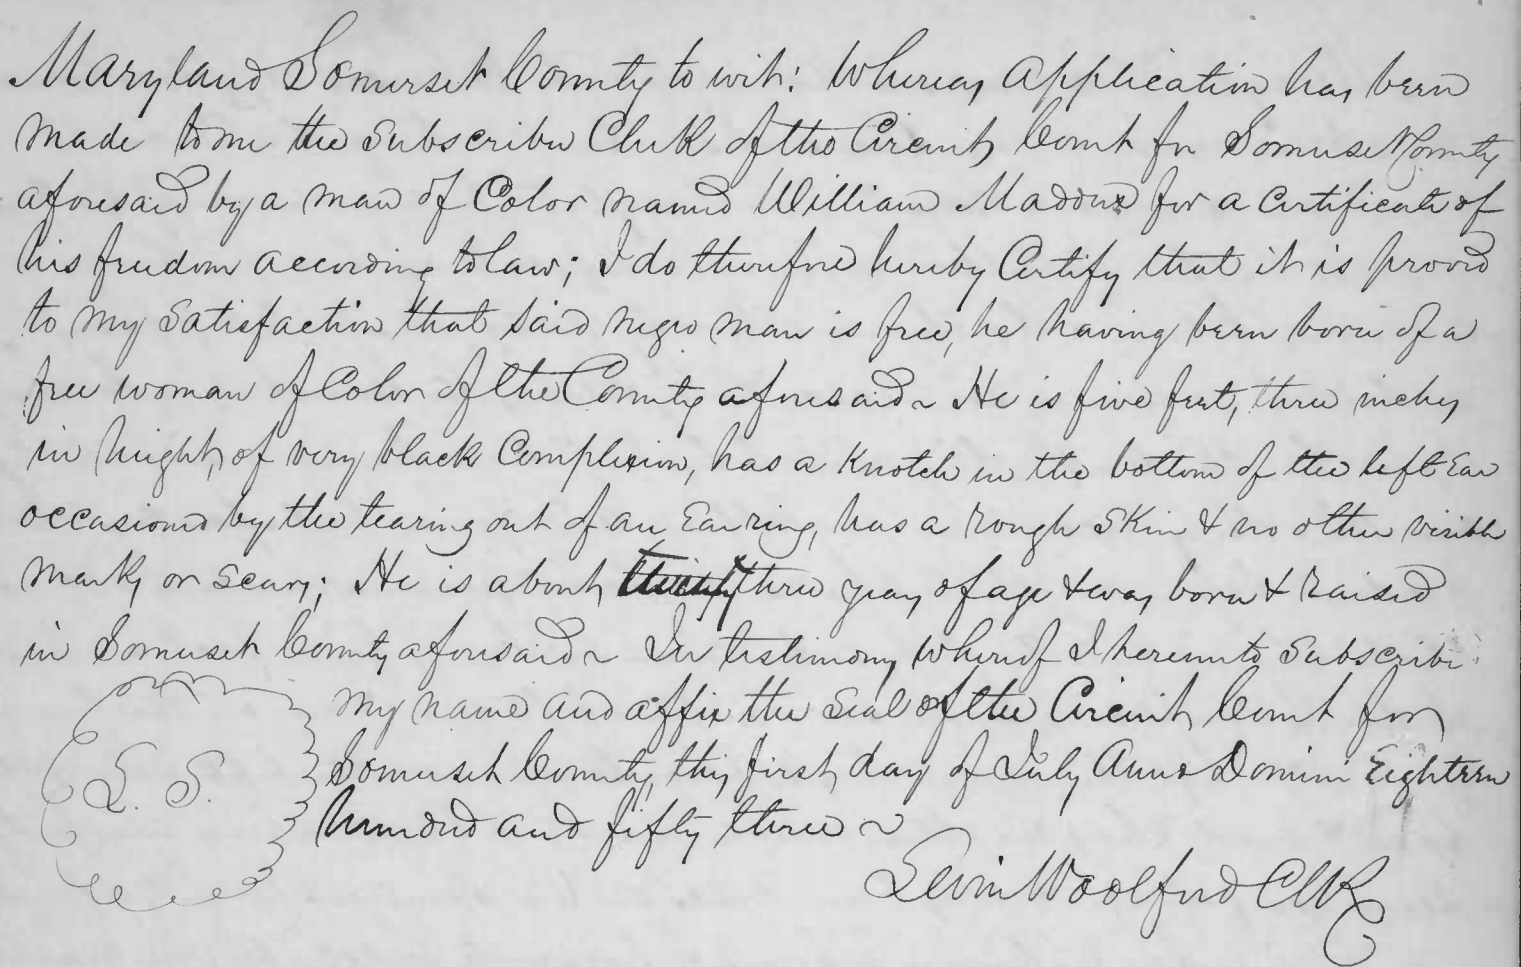 Maryland Somerset County to wit: Whereas application has been
made to me the Subscriber Clerk of the Circuit Court for Somerset County
aforesaid by a man of Color named William Maddux for a certificate of
his freedom according to law; I do therefore hereby Certify that it is proved
to my Satisfaction that said negro man is free, he having been born of a
free woman of Color of the County aforesaid ~ He is five feet, three inches
in height, of very black Complexion, has a Knotch in the bottom of the left Ear
occasioned by the tearing out of an Earring, has a rough Skin & no other visible
marks or Scars; He is about three years of age & was born & raised
in Somerset County aforesaid ~ In testimony whereof I hereunto Subscribe
my name and affix the Seal of the Circuit Court for
Somerset County, this first day of July Anno Domini Eighteen
L. S.
hundred and fifty three ~
Levin Woolford Clk